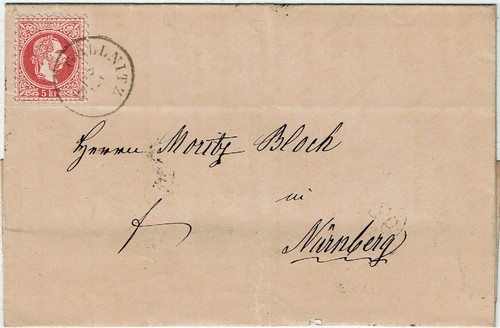 5 kr
Herrn Moritz Bloch
in
Nürnberg